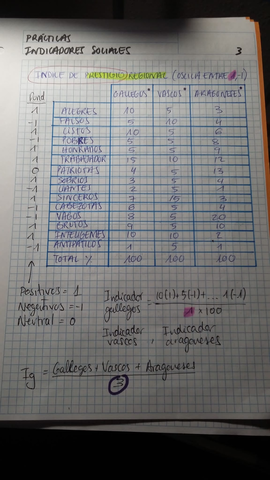 PRÁCTICAS
INDICADORES SOCIALES 3
ÍNDICE DE PRESTIGIO REGIONAL (OSCILA ENTRE 1,-1)
Pond GALLEGOS VASCOS ARAGONESES
1 ALEGRES 10 5 3
-1 FALSOS 5 10 4
1 LISTOS 10 5 6
-1 POBRES 5 5 8
1 HONRADOS 5 5 4
1 TRABAJADOR 15 10 12
0 PATRIOTAS 4 5 13
1 SERIOS 3 5 4
2 5 1
1 SINCEROS 7 15 3
-1 CABEZOTAS 6 5 4
-1 VAGOS 8 5 20
BRUTOS 9 5 10
1 INTELIGENTES 10 10 2
-1 ANTIPÁTICOS 1 5 1
TOTAL % 100 100 100
Positivos = 1
Negativos = -1
Neutral = 0
Indicador gallegos = 10(1)+5(-1)+... 1(-1)
1 × 100
Indicador vascos , Indicador aragoneses
Ig = Gallegos + Vascos + Aragoneses
3